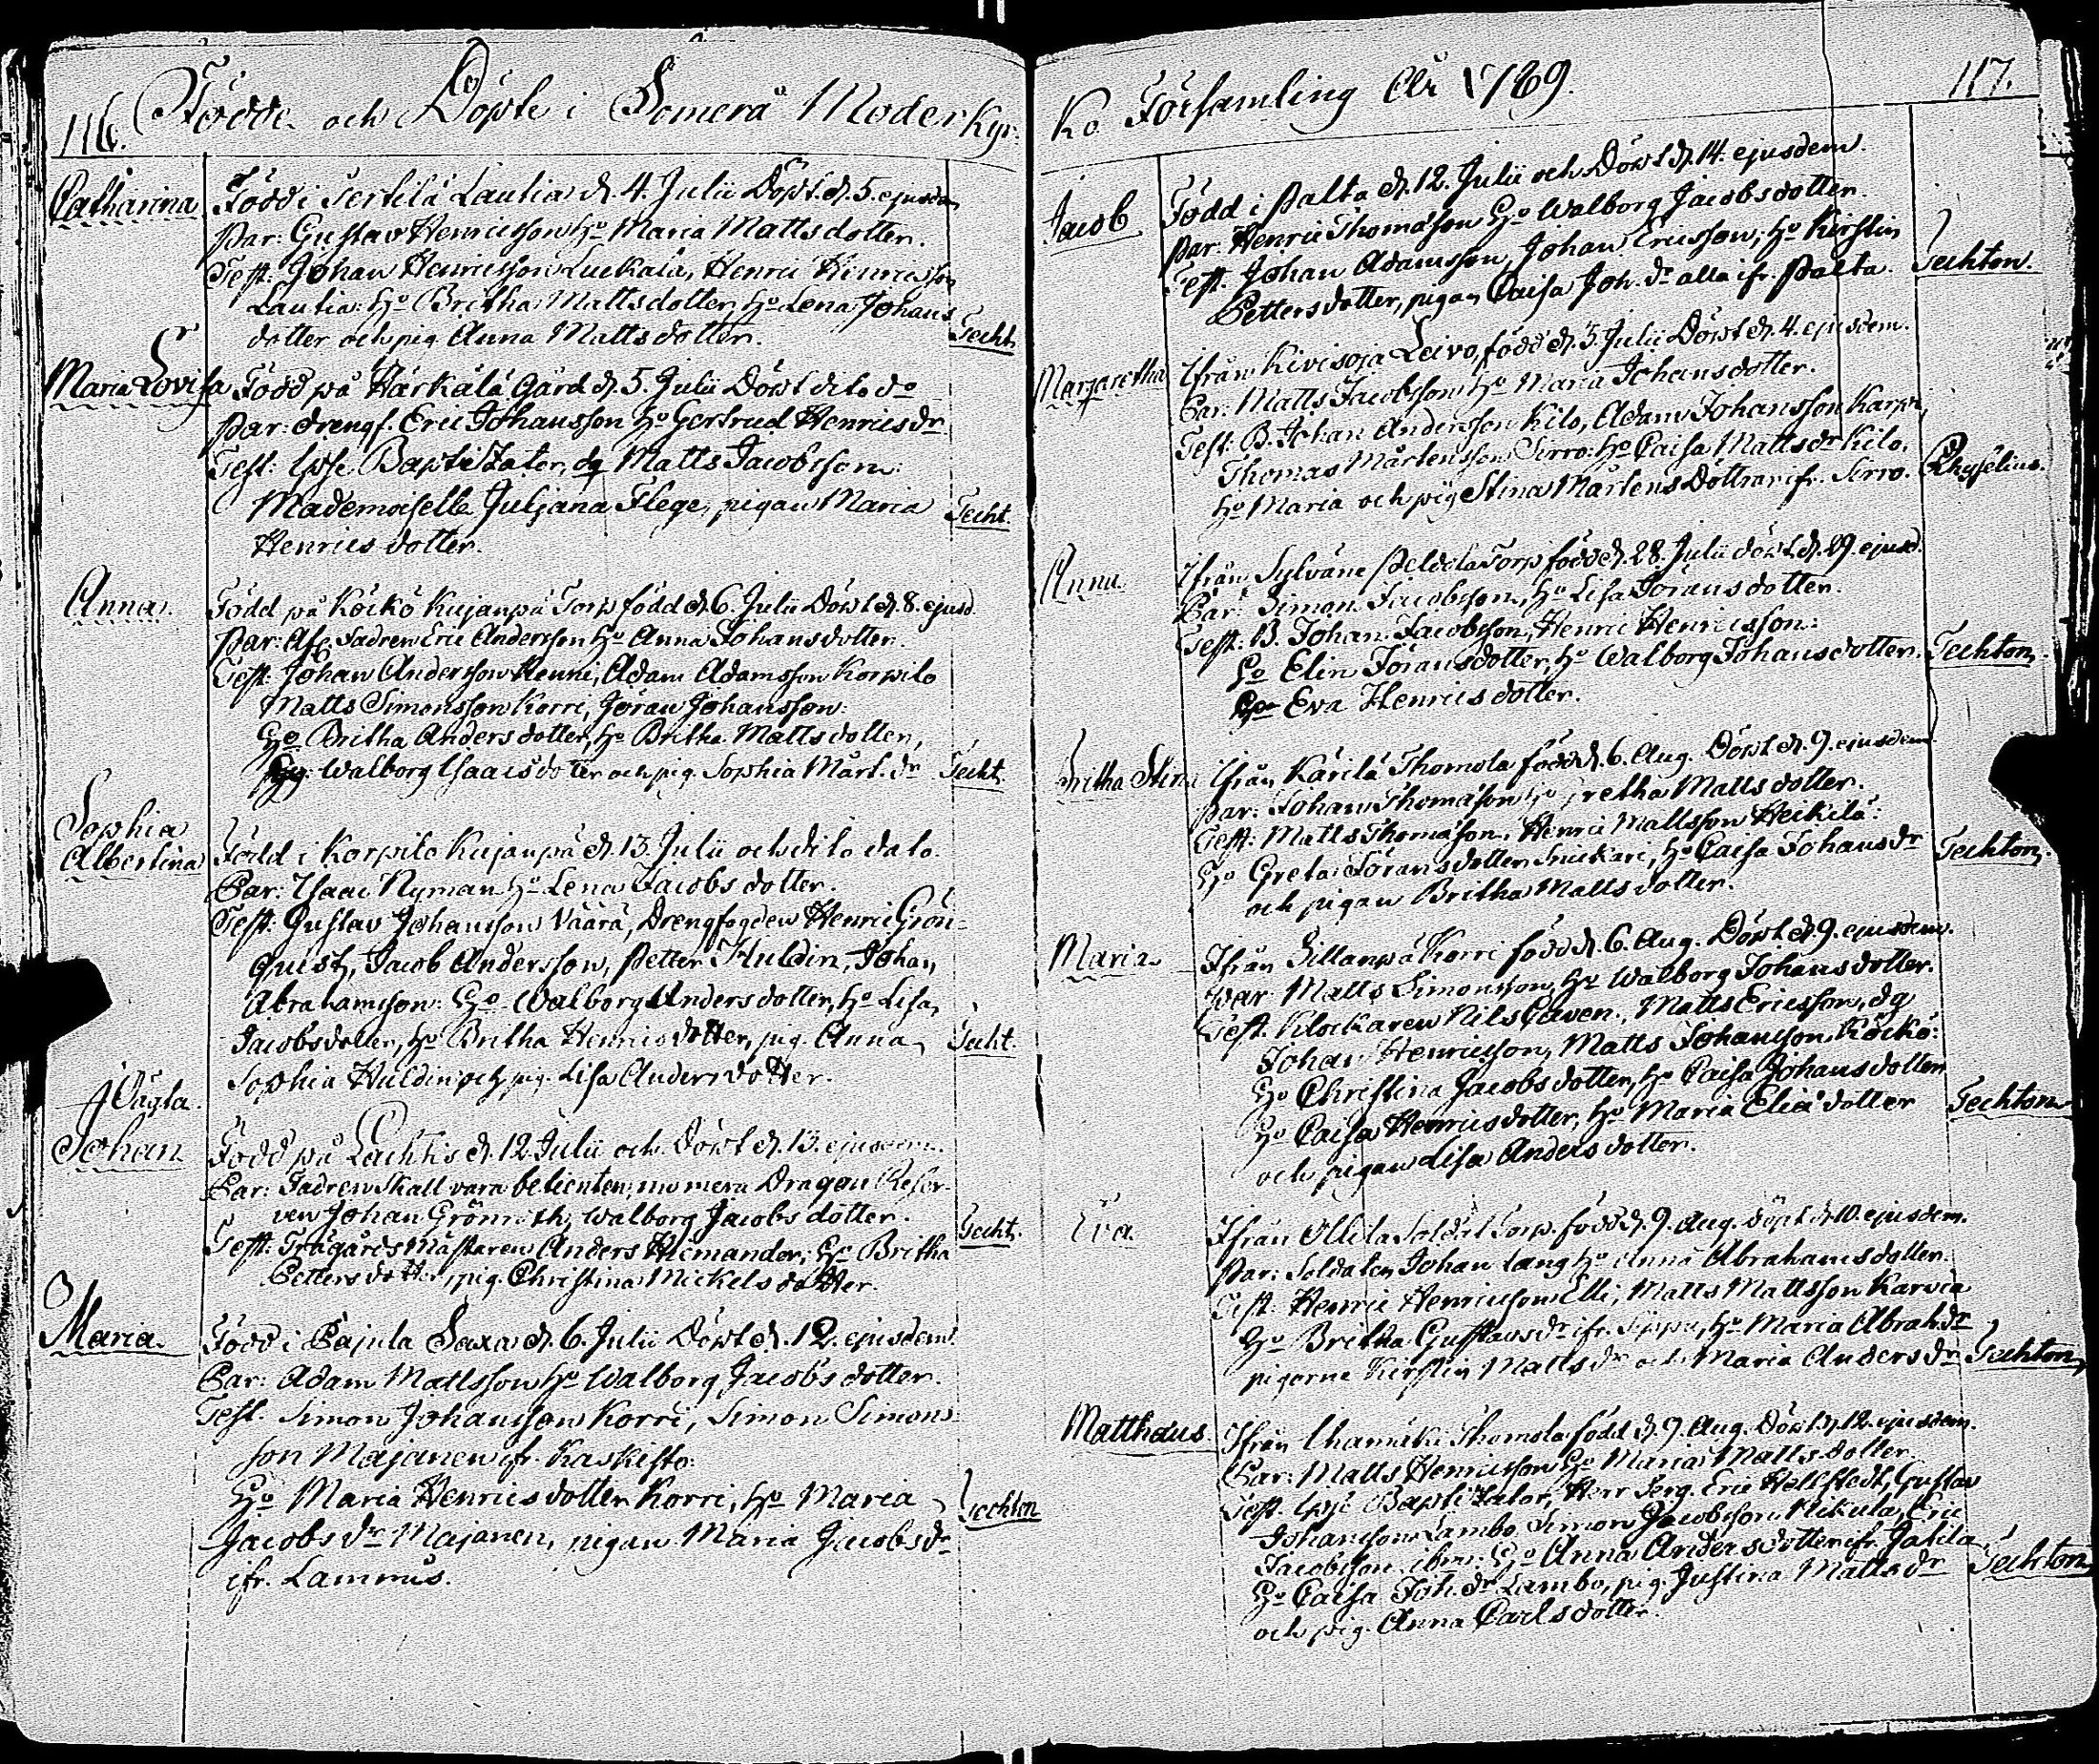 116. Födde och Döpte i Somero Moderkyr-
Catharina
Född i Terttilä Lautia d. 4. Julii Döpt d. 5. ejusdem
Par: Gustav Henricsson Ho Maria Mattsdotter.
Test: Johan Henricsson Luckala, Henric Henricsson
Lautia: Ho Britha Mattsdotter, Ho Lena Johans
dotter och pig. Anna Mattsdotter.
Techt.
Maria Lovisa
Född på Härkälä Gård d. 5. Julii Döpt dito do
Par: drengf. Eric Johansson Ho Gertrud Henricsdr
Test: Ipse Baptizator, dg Matts Jacobsson:
Mademoiselle Juljana Flege, pigan Maria
Henricsdotter.
Techt.
Anna
Född på Köckö Kujanpä Torp född d. 6. Julii Döpt d. 8. ejusd.
Par: Afl. Fadren Eric Andersson Ho Anna Johansdotter.
Test: Johan Andersson Henni, Adam Adamsson Korpilo
Matts Simonsson Korri, Jöran Johansson:
Ho Britha Andersdotter, Ho Britha Mattsdotter,
Walborg Isaacsdotter och pig. Sophia Mårt. dr
Techt.
Sophia
Albertina
Född i Korpilo Kujanpä d. 13. Julii och dito dato.
Par: Isaac Nyman Ho Lena Jacobsdotter.
Test: Gustav Johansson Väärä, Drengfogden Henric Grön-
quist, Jacob Andersson, Petter Huldin, Johan
Abrahamsson: Ho Walborg Andersdotter, Ho Lisa
Jacobsdotter, Ho Britha Henricsdotter, pig. Anna
Sophia Huldin och pig. Lisa Andersdotter.
Techt.
Oägta
Johan
Född på Lachtis d. 12 Julii och Döpt d. 13. ejusdem.
Par: Fadren skall vara betienten, mo mera Dragon Reser-
ven Johan Grönroth, Walborg Jacobsdotter.
Test: Trägårdsmästaren Anders Widmander, Ho Britha
Pettersdotter, pig. Christina Mickelsdotter.
Techt.
Maria.
Född i Pajula Saxa d. 6. Julii Döpt d. 12. ejusdem.
Par: Adam Mattsson Ho Walborg Jacobsdotter.
Test. Simon Johansson Korri, Simon Simons
son Majanen ifr. Kaskisto:
Ho Maria Henricsdotter Korri, Ho Maria
Jacobsdr Majanen, pigan Maria Jacobsdr
ifr. Lammis.
Techton
ko Församling År 1789. 117.
Jacob
Född i Palta d. 12. Julii och Döpt d. 14. ejusdem.
Par: Henric Thomasson Ho Walborg Jacobsdotter.
Test. Johan Adamsson, Johan Ericsson, Ho Kirstin
Pettersdotter, pigan Caisa Joh. dr alla ifr. Palta.
Techton.
Margaretha
Ifrån Kivisoja Leivo, född d. 3. Julii Döpt d. 4. ejusdem.
Par: Matts Jacobsson Ho Maria Johansdotter.
Test: B. Johan Andersson Kilo, Adam Johansson Karpi,
Thomas Mårtensson Sirro: Ho Caisa Mattsdr Kilo,
Ho Maria och pig Stina Mårtens Döttrar ifr. Sirro.
Rhyselius.
Anna
Ifrån Sylväne Peldola Torp född d. 28. Julii döpt d. 29. ejusd.
Par: Simon Jacobsson, Ho Lisa Jöransdotter.
Test: B. Johan Jacobsson, Henric Henricsson:
Ho Elin Jöransdotter, Ho Walborg Johansdotter.
Ho Eva Henricsdotter.
Techton.
Britha Stina
Ifrån Kärilä Thomola född d. 6. Aug. Döpt d. 9. ejusdem
Par: Johan Thomasson Ho Gretha Mattsdotter.
Test: Matts Thomasson, Henric Mattsson Heikilä:
Ho Greta Jöransdotter Snickari, Ho Caisa Johansdr
och pigan Britha Mattsdotter.
Techton.
Maria
Ifrån Sillanpä Korri född d. 6. Aug. Döpt d. 9. ejusdem.
Par: Matts Simonsson, Ho Walborg Johansdotter.
Test. Klockaren Nils Caven, Matts Ericsson, dg
Johan Henricsson, Matts Johansson Köckö:
Ho Christina Jacobsdotter, Ho Caisa Johansdotter
Ho Caisa Henricsdotter, Ho Maria Eliädotter
och pigan Lisa Andersdotter.
Techton
Eva.
Ifrån Ollila Soldat Torp. född d. 9. Aug. döpt d. 10. ejusdem.
Par: Soldaten Johan Lang Ho Anna Abrahamsdotter.
Test: Henric Henricsson Elli, Matts Mattsson Karvia
Ho Britha Gustavsdr ifr. Sippu, Ho Maria Abrahdr
pigorne Kirstin Mattsdr och Maria Andersdr
Techton
Matthæus
Ifrån Ihamäki Thomola född d. 9. Aug. Döpt d. 12. ejusdem.
Par: Matts Henricsson Ho Maria Mattsdotter
Test. Ipse Baptizator, Herr Serg. Eric Hellstedt, Gustav
Johansson Lambo Simon Jacobsson Nikula, Eric
Jacobsson ibm: Ho Anna Andersdotter ifr. Jakila
Ho Caisa Joh. dr Lambo, pig. Justina Mattsdr
och pig. Anna Carlsdotter.
Techton